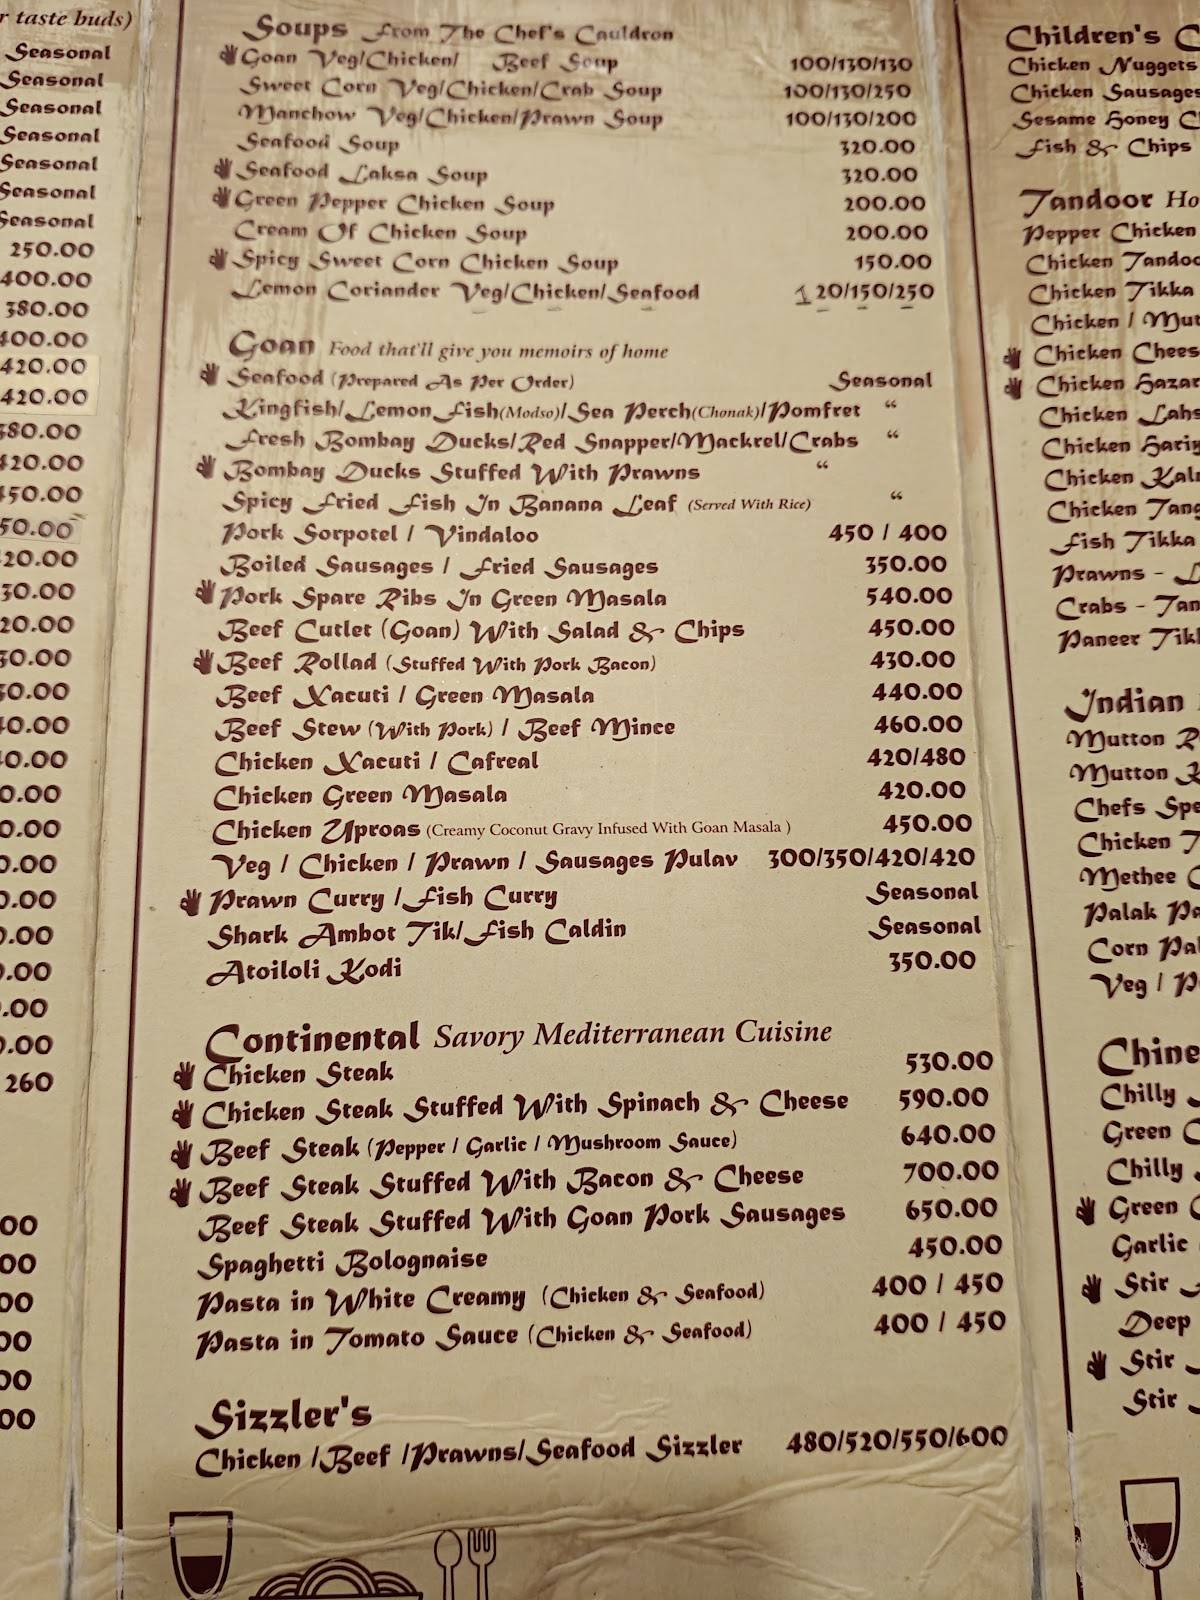 r taste buds)
Seasonal
Seasonal
Seasonal
Seasonal
Seasonal
Seasonal
Seasonal
250.00
400.00
380.00
400.00
420.00
420.00
380.00
420.00
450.00
50.00
20.00
30.00
20.00
30.00
0.00
40.00
0.00
0.00
0.00
0.00
0.00
0.00
0.00
.00
0.00
260
00
00
00
00
00
00
Soups From The Chef's Cauldron
Goan Veg/Chicken/ Beef Soup 100/130/130
Sweet Corn Veg/Chicken/Crab Soup 100/130/250
Manchow Veg/Chicken/Prawn Soup 100/130/200
Seafood Soup 320.00
Seafood Laksa Soup 320.00
Green Pepper Chicken Soup 200.00
Cream Of Chicken Soup 200.00
Spicy Sweet Corn Chicken Soup 150.00
Lemon Coriander Veg/Chicken/Seafood 120/150/250
Goan Food that'll give you memoirs of home
Seafood (Prepared As Per Order) Seasonal
Kingfish/Lemon Fish(Modso)/Sea Perch(Chonak)/Pomfret “
Fresh Bombay Ducks/Red Snapper/Mackrel/Crabs “
Bombay Ducks Stuffed With Prawns “
Spicy Fried Fish In Banana Leaf (Served With Rice) “
Pork Sorpotel / Vindaloo 450 / 400
Boiled Sausages / Fried Sausages 350.00
Pork Spare Ribs In Green Masala 540.00
Beef Cutlet (Goan) With Salad & Chips 450.00
Beef Rollad (Stuffed With Pork Bacon) 430.00
Beef Xacuti / Green Masala 440.00
Beef Stew (With Pork) / Beef Mince 460.00
Chicken Xacuti / Cafreal 420/480
Chicken Green Masala 420.00
Chicken Uproas (Creamy Coconut Gravy Infused With Goan Masala ) 450.00
Veg / Chicken / Prawn / Sausages Pulav 300/350/420/420
Prawn Curry /Fish Curry Seasonal
Shark Ambot Tik/Fish Caldin Seasonal
Atoiloli Kodi 350.00
Continental Savory Mediterranean Cuisine
Chicken Steak 530.00
Chicken Steak Stuffed With Spinach & Cheese 590.00
Beef Steak (Pepper / Garlic / Mushroom Sauce) 640.00
Beef Steak Stuffed With Bacon & Cheese 700.00
Beef Steak Stuffed With Goan Pork Sausages 650.00
Spaghetti Bolognaise 450.00
Pasta in White Creamy (Chicken & Seafood) 400 / 450
Pasta in Tomato Sauce (Chicken & Seafood) 400 / 450
Sizzler's
Chicken /Beef /Prawns/Seafood Sizzler 480/520/550/600
Children's C
Chicken Nuggets
Chicken Sausages
Sesame Honey C
Fish & Chips
Tandoor Ho
Pepper Chicken
Chicken Tandoo
Chicken Tikka
Chicken / Mut
Chicken Chees
Chicken Hazar
Chicken Lahs
Chicken Hariy
Chicken Kal
Chicken Tang
Fish Tikka
Prawns - L
Crabs - Tan
Paneer Tik
Indian
Mutton R
Mutton K
Chefs Spe
Chicken T
Methee C
Palak Pa
Corn Pal
Veg / P
Chine
Chilly
Green C
Chilly
Green
Garlic
Stir
Deep
Stir
Stir